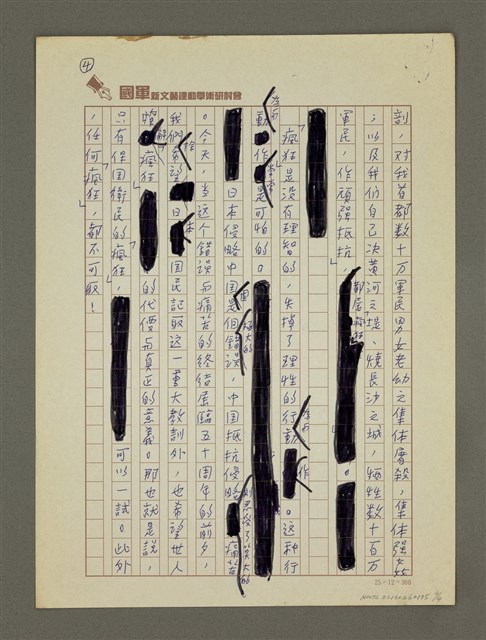 ④
國軍新文藝運動學術研討會
剖，对我首都数十万軍民男女老幼之集体屠殺，集体强姦
；以及我們自己决黄河之堤、燒長沙之城，牺牲数十百万
軍民，作頑强抵抗，都屬瘋狂。
「瘋狂」是没有理智的，失掉了理性的行動或動作。这种行
動或動作常常是可怕的。
日本侵略中国是個極大的錯誤，中国抵抗侵略則忍受了莫大的痛苦
。今天，当这个錯誤而痛苦的终結屆臨五十周年的前夕，
我們除希望日本国民記取这一重大教訓外，也希望世人
瞭解「瘋狂」的代價与真正的意義。那也就是說，
只有保国衛民的「瘋狂」，可以一試。此外
，任何「瘋狂」，都不可取！
25×12=300